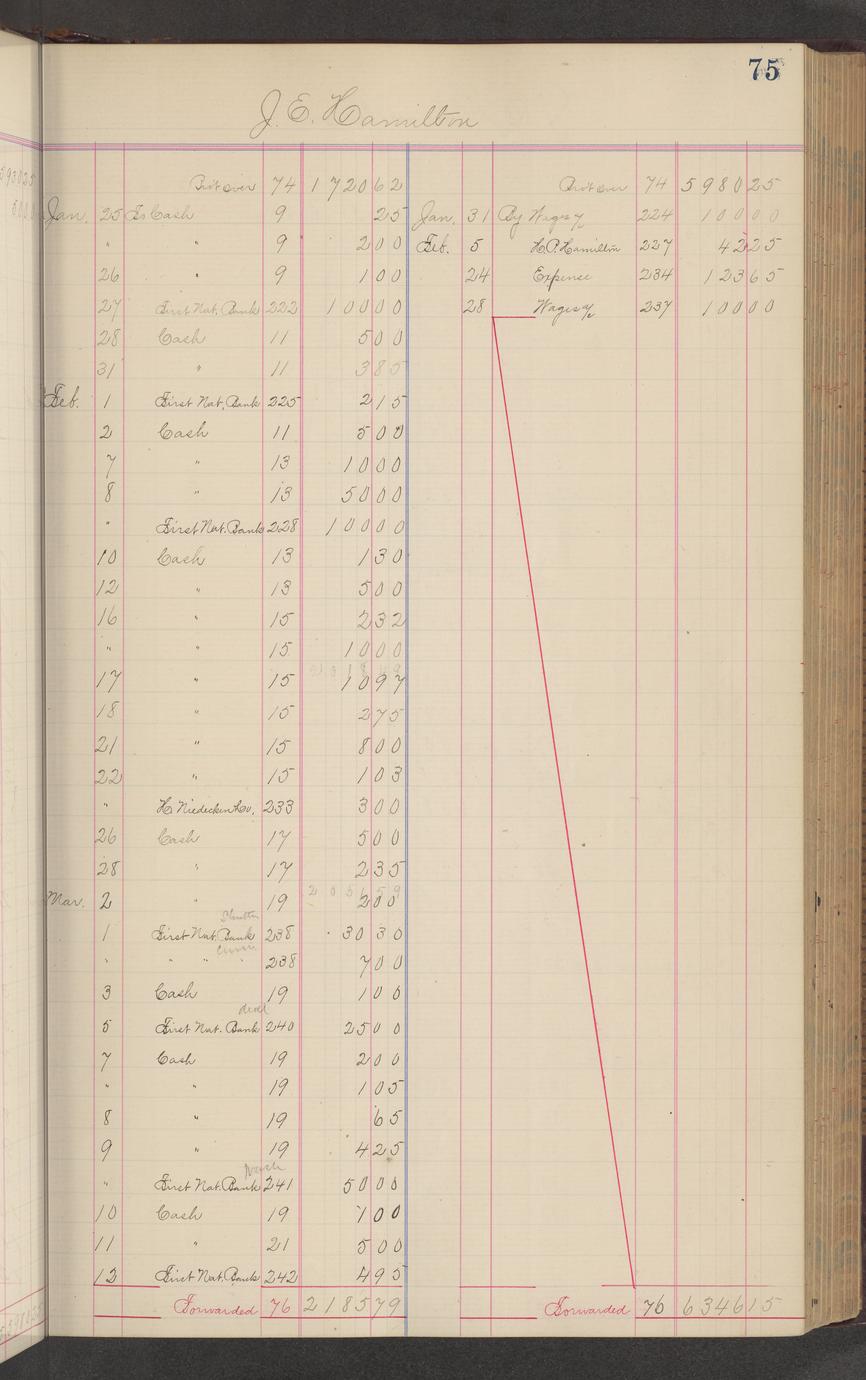 75
J. E. Hamilton
Bro't over 74 1 7 2 0 6 2
Jan. 25 To Cash 9 2 5
" " 9 2 0 0
26 " 9 1 0 0
27 First Nat. Bank 222 1 0 0 0 0
28 Cash 11 5 0 0
31 " 11 3 8 5
Feb. 1 First Nat. Bank 225 2 1 5
2 Cash 11 5 0 0
7 " 13 1 0 0 0
8 " 13 5 0 0 0
" First Nat. Bank 228 1 0 0 0 0
10 Cash 13 1 3 0
12 " 13 5 0 0
16 " 15 2 3 2
" " 15 1 0 0 0
17 " 15 1 0 9 7
18 " 15 2 7 5
21 " 15 8 0 0
22 " 15 1 0 3
" 233 3 0 0
26 Cash 17 5 0 0
28 " 17 2 3 5
2 0 5 6 5 9
Mar. 2 " 19 2 0 0
1 First Nat. Bank 238 3 0 3 0
" " " " 238 7 0 0
3 Cash 19 1 0 0
5 First Nat. Bank 240 2 5 0 0
7 Cash 19 2 0 0
" " 19 1 0 5
8 " 19 6 5
9 " 19 4 2 5
" First Nat. Bank 241 5 0 0 0
10 Cash 19 1 0 0
11 " 21 5 0 0
12 First Nat. Bank 242 4 9 5
Forwarded 76 2 1 8 5 7 9
Bro't over 74 5 9 8 0 2 5
Jan. 31 By Wages a/c 224 1 0 0 0 0
Feb. 5 H. P. Hamilton 227 4 2 2 5
24 Expense 234 1 2 3 6 5
28 Wages a/c 237 1 0 0 0 0
Forwarded 76 6 3 4 6 1 5